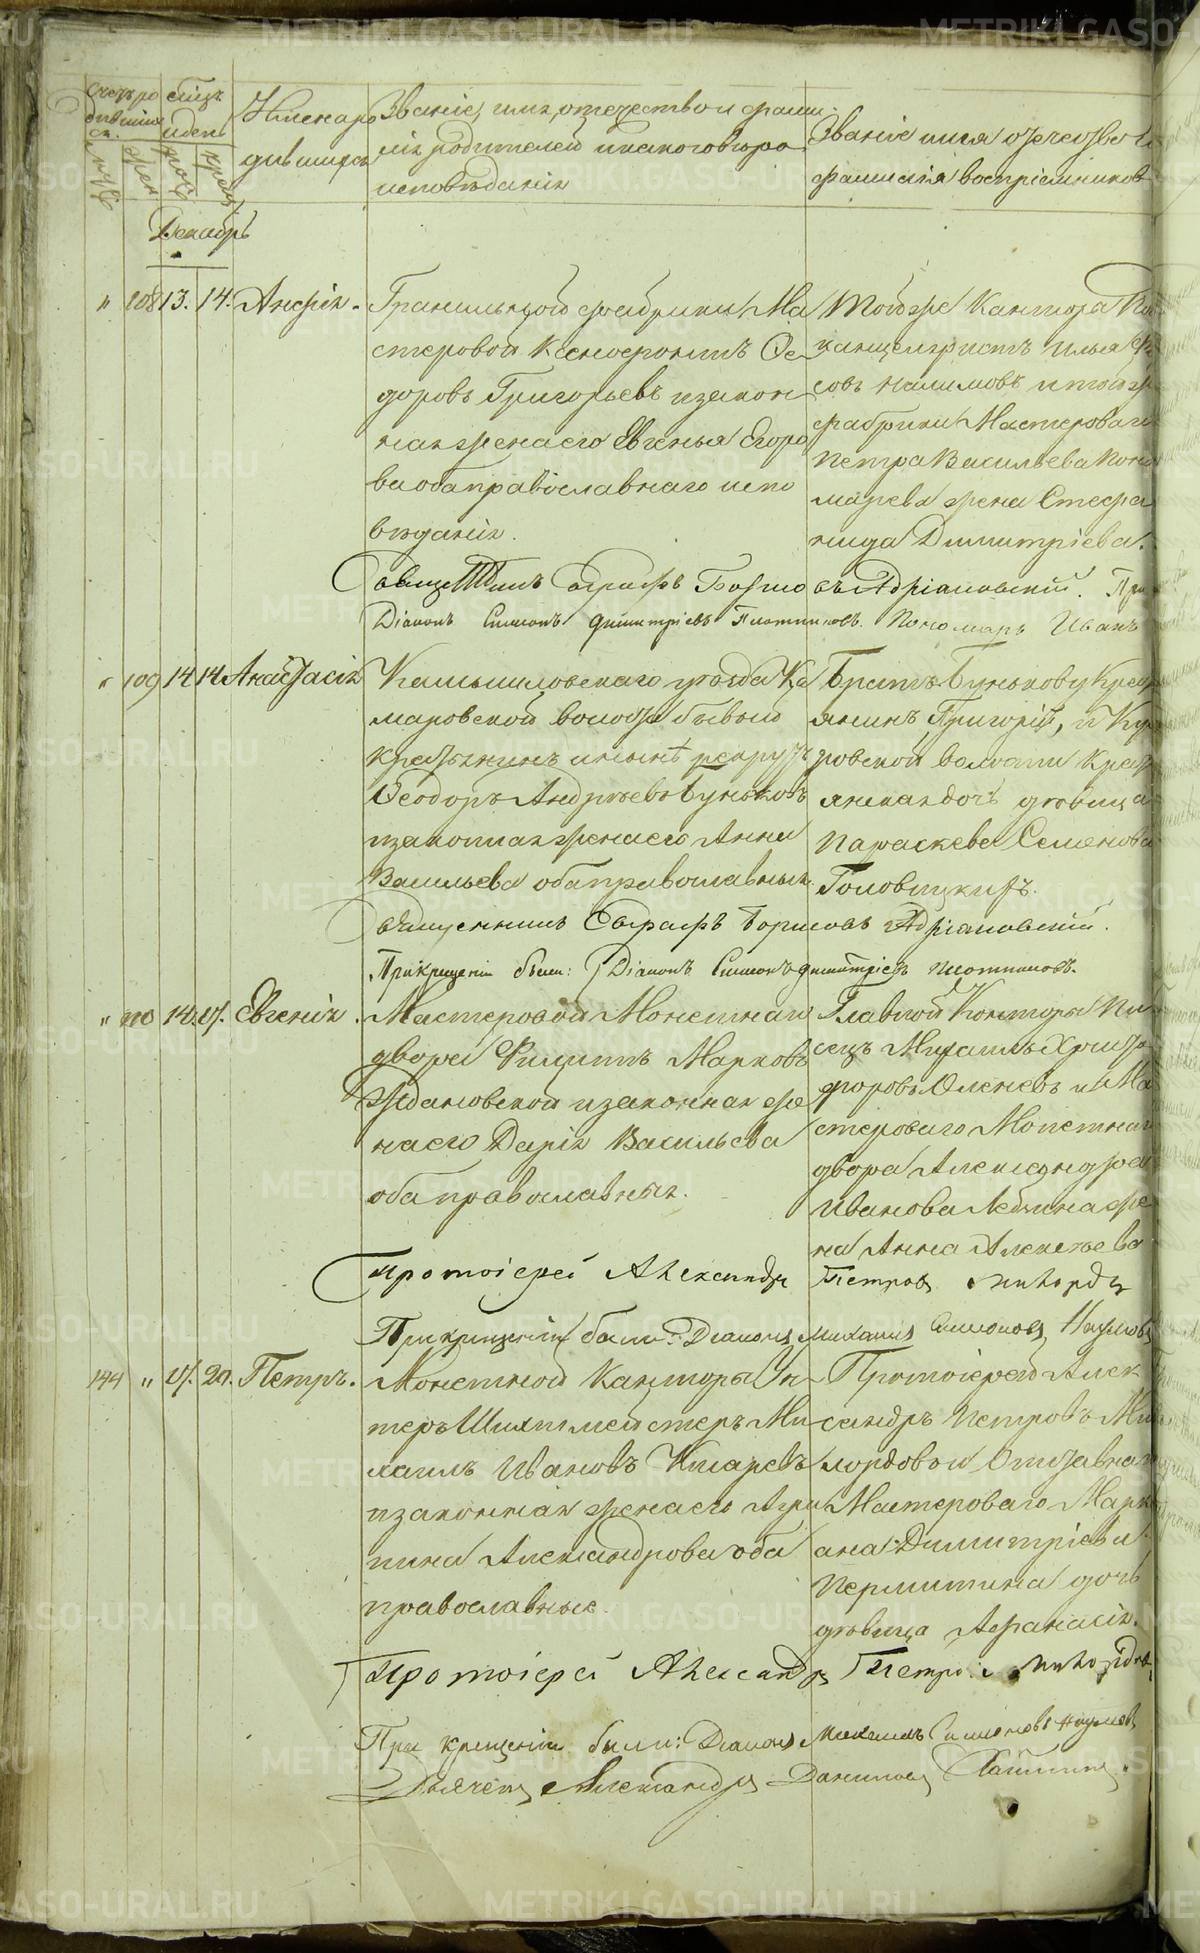 Счетъ ро
дивших
ся.
муж
жен
Мѣсяцъ
и день
рож
крещ
Имена ро
дившихся
Званіе, имя, отечество и фами
лія родителей и какого вѣро
исповѣданія
Званіе имя отечество и
фамилія воспріемниковъ
Декабрь
" 108 13. 14. Анфія.
Гранильной фабрики Ма
стеровой Ксенофонтъ Ѳе
доровъ Григорьевъ и закон
ная жена его Евгенья Егоро
ва оба православнаго испо
вѣданія.
Тойже Канторы
канцеляристъ Илья
совъ Налимовъ и тойже
фабрики Мастероваго
Петра Васильева Поно
марева жена Стефа
нида Димитріева.
Священникъ Евграфъ Борисовъ Адріановскій. При
Діаконъ Симеонъ Димитріевъ Плотниковъ. Пономарь Иванъ
" 109 14 14 Анастасія
Камышловскаго уѣзда Ка
маровской волости бывый
крестьянинъ инынѣ рекрутъ
Ѳеодоръ Андреевъ Буньковъ
и законная жена его Анна
Васильева оба православныя.
Братъ Бунькову Кресть
янинъ Григорій, и
ровской волости Кресть
янская дочь дѣвица
Параскева Семенова
Головицкихъ.
Священникъ Евграфъ Борисовъ Адріановскій.
При крещеніи были: Діаконъ Симеонъ Димитріевъ Плотниковъ.
" 110 14. 17. Евгенія.
Мастеровой Монетнаго
двора Филиппъ Марковъ
Ждановской и законная же
на его Дарія Васильева
оба православныя.
Главной Конторы Пи
сецъ Михаилъ Христо
форовъ Оленевъ и Ма
стероваго Монетнаго
двора Александра
Иванова жe
на Анна Алексѣева
Протоіерей Александръ Петровъ Милордовъ
При крещеніи были: Діаконъ Михаилъ Симеоновъ Наумовъ
144 " 17. 20. Петръ.
Монетной Канторы Ун
теръ Шихтмейстеръ Ми
хаилъ Ивановъ Китаревъ
и законная жена его Агри
пина Александрова оба
православныя.
Протоіерей Алек
сандръ Петровъ Ми
лордовъ и Отставнаго
Мастероваго Марк
ана Димитріева
Пермитина дочь
дѣвица Афанасія.
Протоіерей Александръ Петровъ Милордовъ
При крещеніи были: Діаконъ Михаилъ Симеоновъ Наумовъ
Дьячекъ Александръ Даниловъ
METRIKI.GASO-URAL.RU